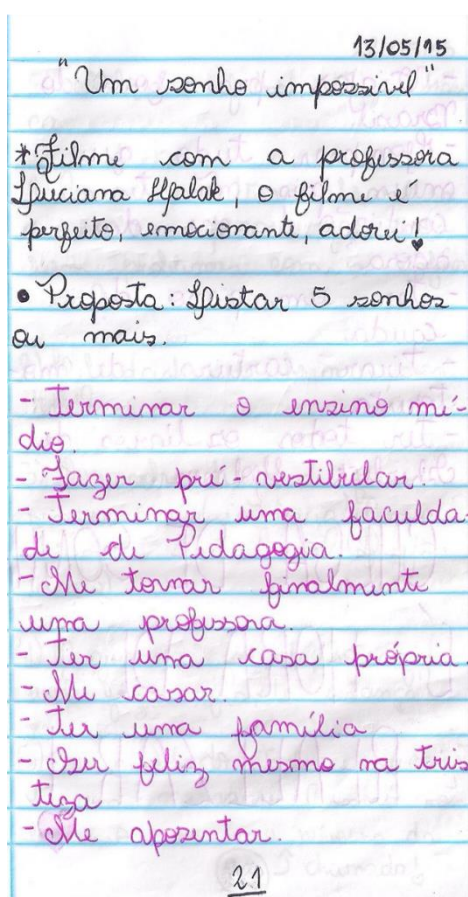 13/05/15
"Um sonho impossivel"
*Filme com a professora
Luciana Halak, o filme é
perfeito, emocionante, adorei!
• Proposta: Listar 5 sonhos
ou mais.
- Terminar o ensino mé-
dio.
- Fazer pré-vestibular.
- Terminar uma faculda-
de de Pedagogia.
- Me tornar finalmente
uma professora.
- Ter uma casa própria.
- Me casar.
- Ter uma família
- Ser feliz mesmo na tris
teza
- Me apozentar.
21